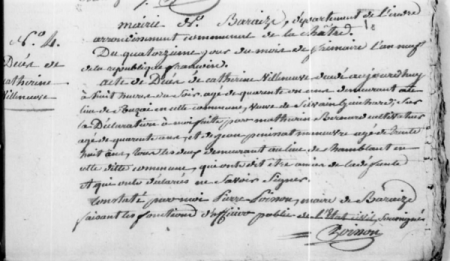 mairie de Baraize, département de l'indre
arrondissement communal de la Châtre
N.o 4.
Décés de
catherine
Villeneuve
Du quatorzieme, jour du mois de frimaire l'an
de la république française
acte de Décés de catherine Villeneuve décédé aujourd'huy
à huit heures du soir, agé de quarente ans demeurant au
lieu de en cette commune, Veuve de Silvain Sur
la Déclaration à moi faite par mathurin cultivateur
agé de quarente ans, et de jean manœuvre agé de trente
huit ans, tous les deux demeurant au lieu de en
cette ditte commune, qui ont dit être amis de la defunte
et qui ont déclarés ne Savoir Signer.
Constaté par moi Pierre Poisson, maire de Baraize
faisant les fonctions d'officier public de l'Etat civil, Soussigné
Poisson